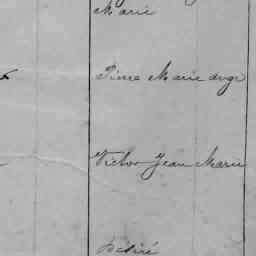 Marie
Pierre Marie ange
Victor Jean Marie
Désiré